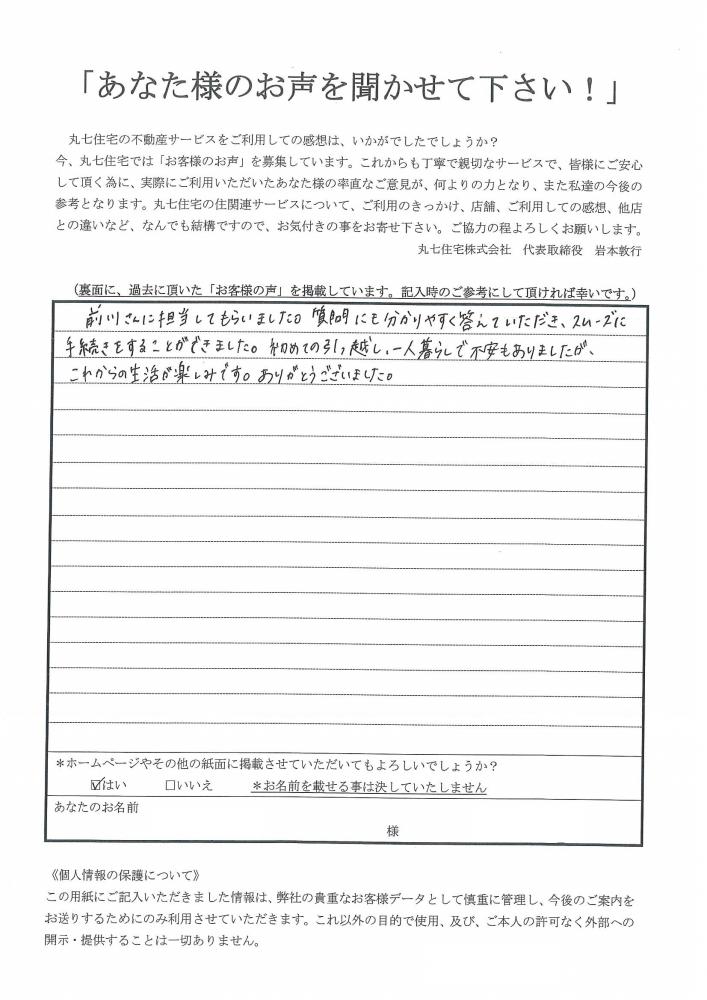 「あなた様のお声を聞かせて下さい！」
丸七住宅の不動産サービスをご利用しての感想は、いかがでしたでしょうか？
今、丸七住宅では「お客様のお声」を募集しています。これからも丁寧で親切なサービスで、皆様にご安心
して頂く為に、実際にご利用いただいたあなた様の率直なご意見が、何よりの力となり、また私達の今後の
参考となります。丸七住宅の住関連サービスについて、ご利用のきっかけ、店舗、ご利用しての感想、他店
との違いなど、なんでも結構ですので、お気付きの事をお寄せ下さい。ご協力の程よろしくお願いします。
丸七住宅株式会社　代表取締役　岩本敦行
（裏面に、過去に頂いた「お客様の声」を掲載しています。記入時のご参考にして頂ければ幸いです。）
前川さんに担当してもらいました。質問にも分かりやすく答えていただき、スムーズに
手続きをすることができました。初めての引っ越し、一人暮らしで不安もありましたが、
これからの生活が楽しみです。ありがとうございました。
＊ホームページやその他の紙面に掲載させていただいてもよろしいでしょうか？
☑はい　☐いいえ　＊お名前を載せる事は決していたしません
あなたのお名前
様
《個人情報の保護について》
この用紙にご記入いただきました情報は、弊社の貴重なお客様データとして慎重に管理し、今後のご案内を
お送りするためにのみ利用させていただきます。これ以外の目的で使用、及び、ご本人の許可なく外部への
開示・提供することは一切ありません。